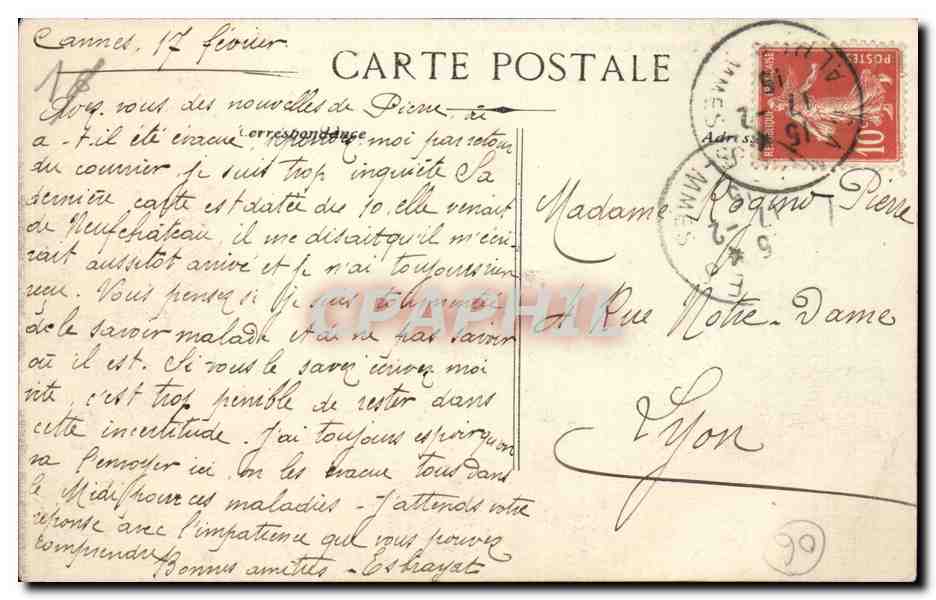 Cannes, 17 février
CARTE POSTALE
Correspondance
Adresse
Avez vous des nouvelles de Pierre, où
a-t-il été évacué, répondez moi par retour
du courrier, je suis trop inquiète Sa
dernière carte est datée du 10, elle venait
de Neufchâteau, il me disait qu'il m'écri-
rait aussitôt arrivé et je n'ai toujours rien
reçu. Vous pensez si je suis tourmentée
de le savoir malade et de ne pas savoir
où il est. Si vous le savez écrivez moi
vite, c'est trop pénible de rester dans
cette incertitude. J'ai toujours espoir qu'on
va l'envoyer ici, on les évacue tous dans
le Midi pour ces maladies - J'attends votre
réponse avec l'impatience que vous pouvez
comprendre
Bonnes amitiés - Esbrayat
Madame Rogino Pierre
Rue Notre-Dame
Lyon
REPUBLIQUE FRANCAISE
POSTES
10c
CPAPHIL
90